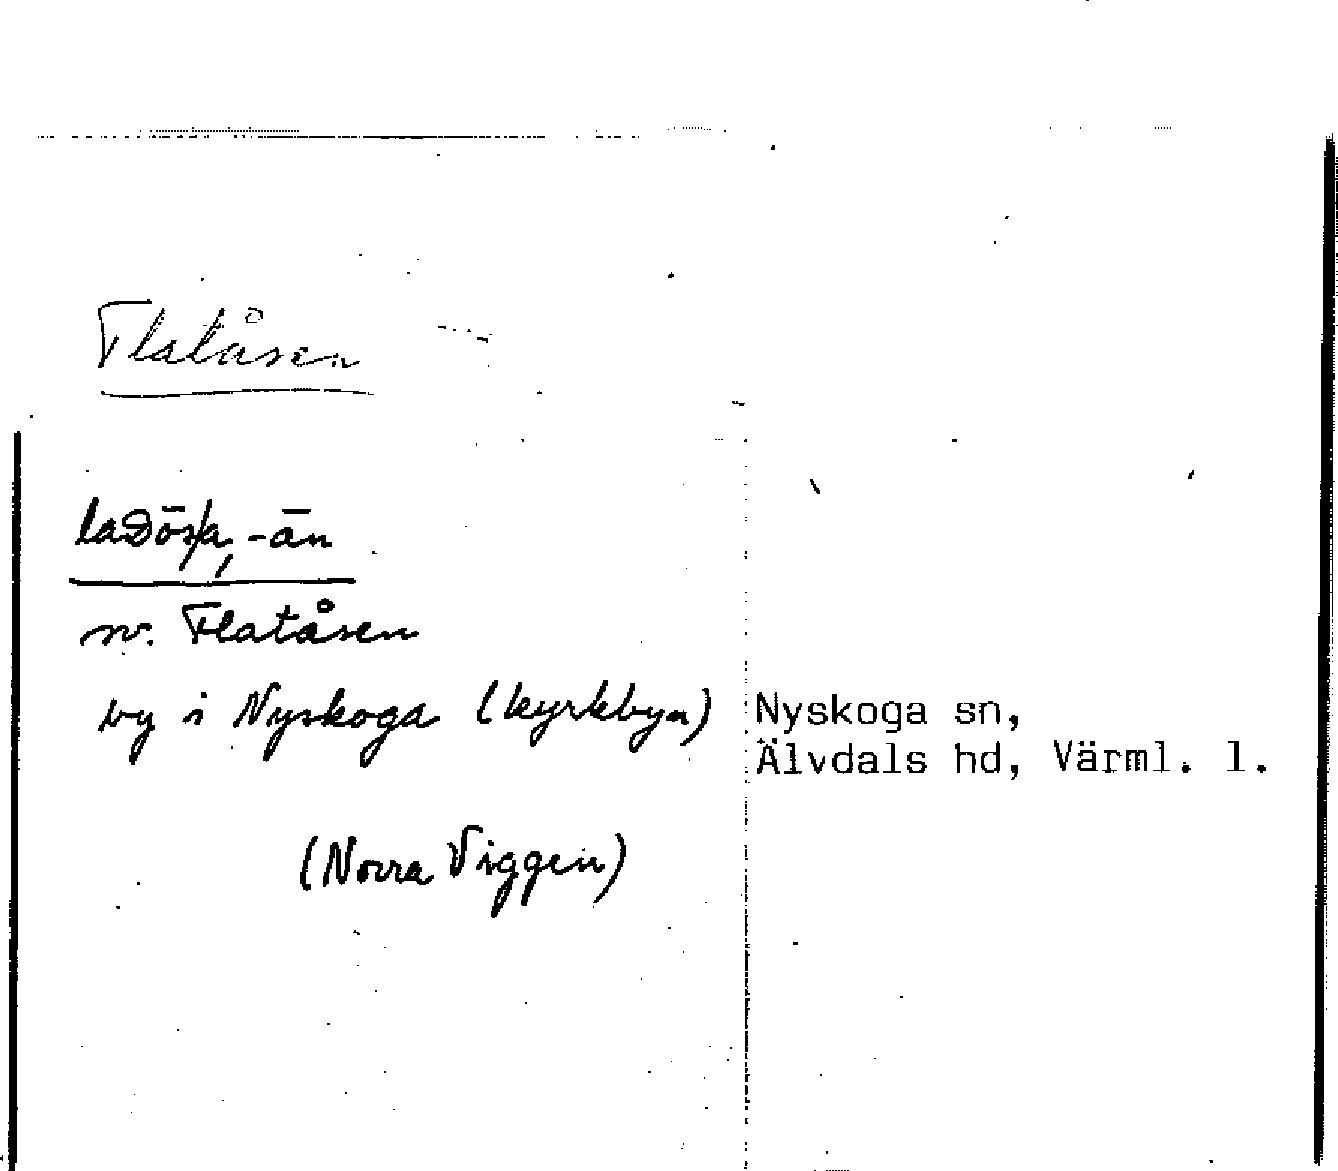 Flatåsen
nv. Flatåsen
by i Nyskoga (kyrkbyn)
Nyskoga sn,
Älvdals hd, Värml. l.
(Norra Viggen)